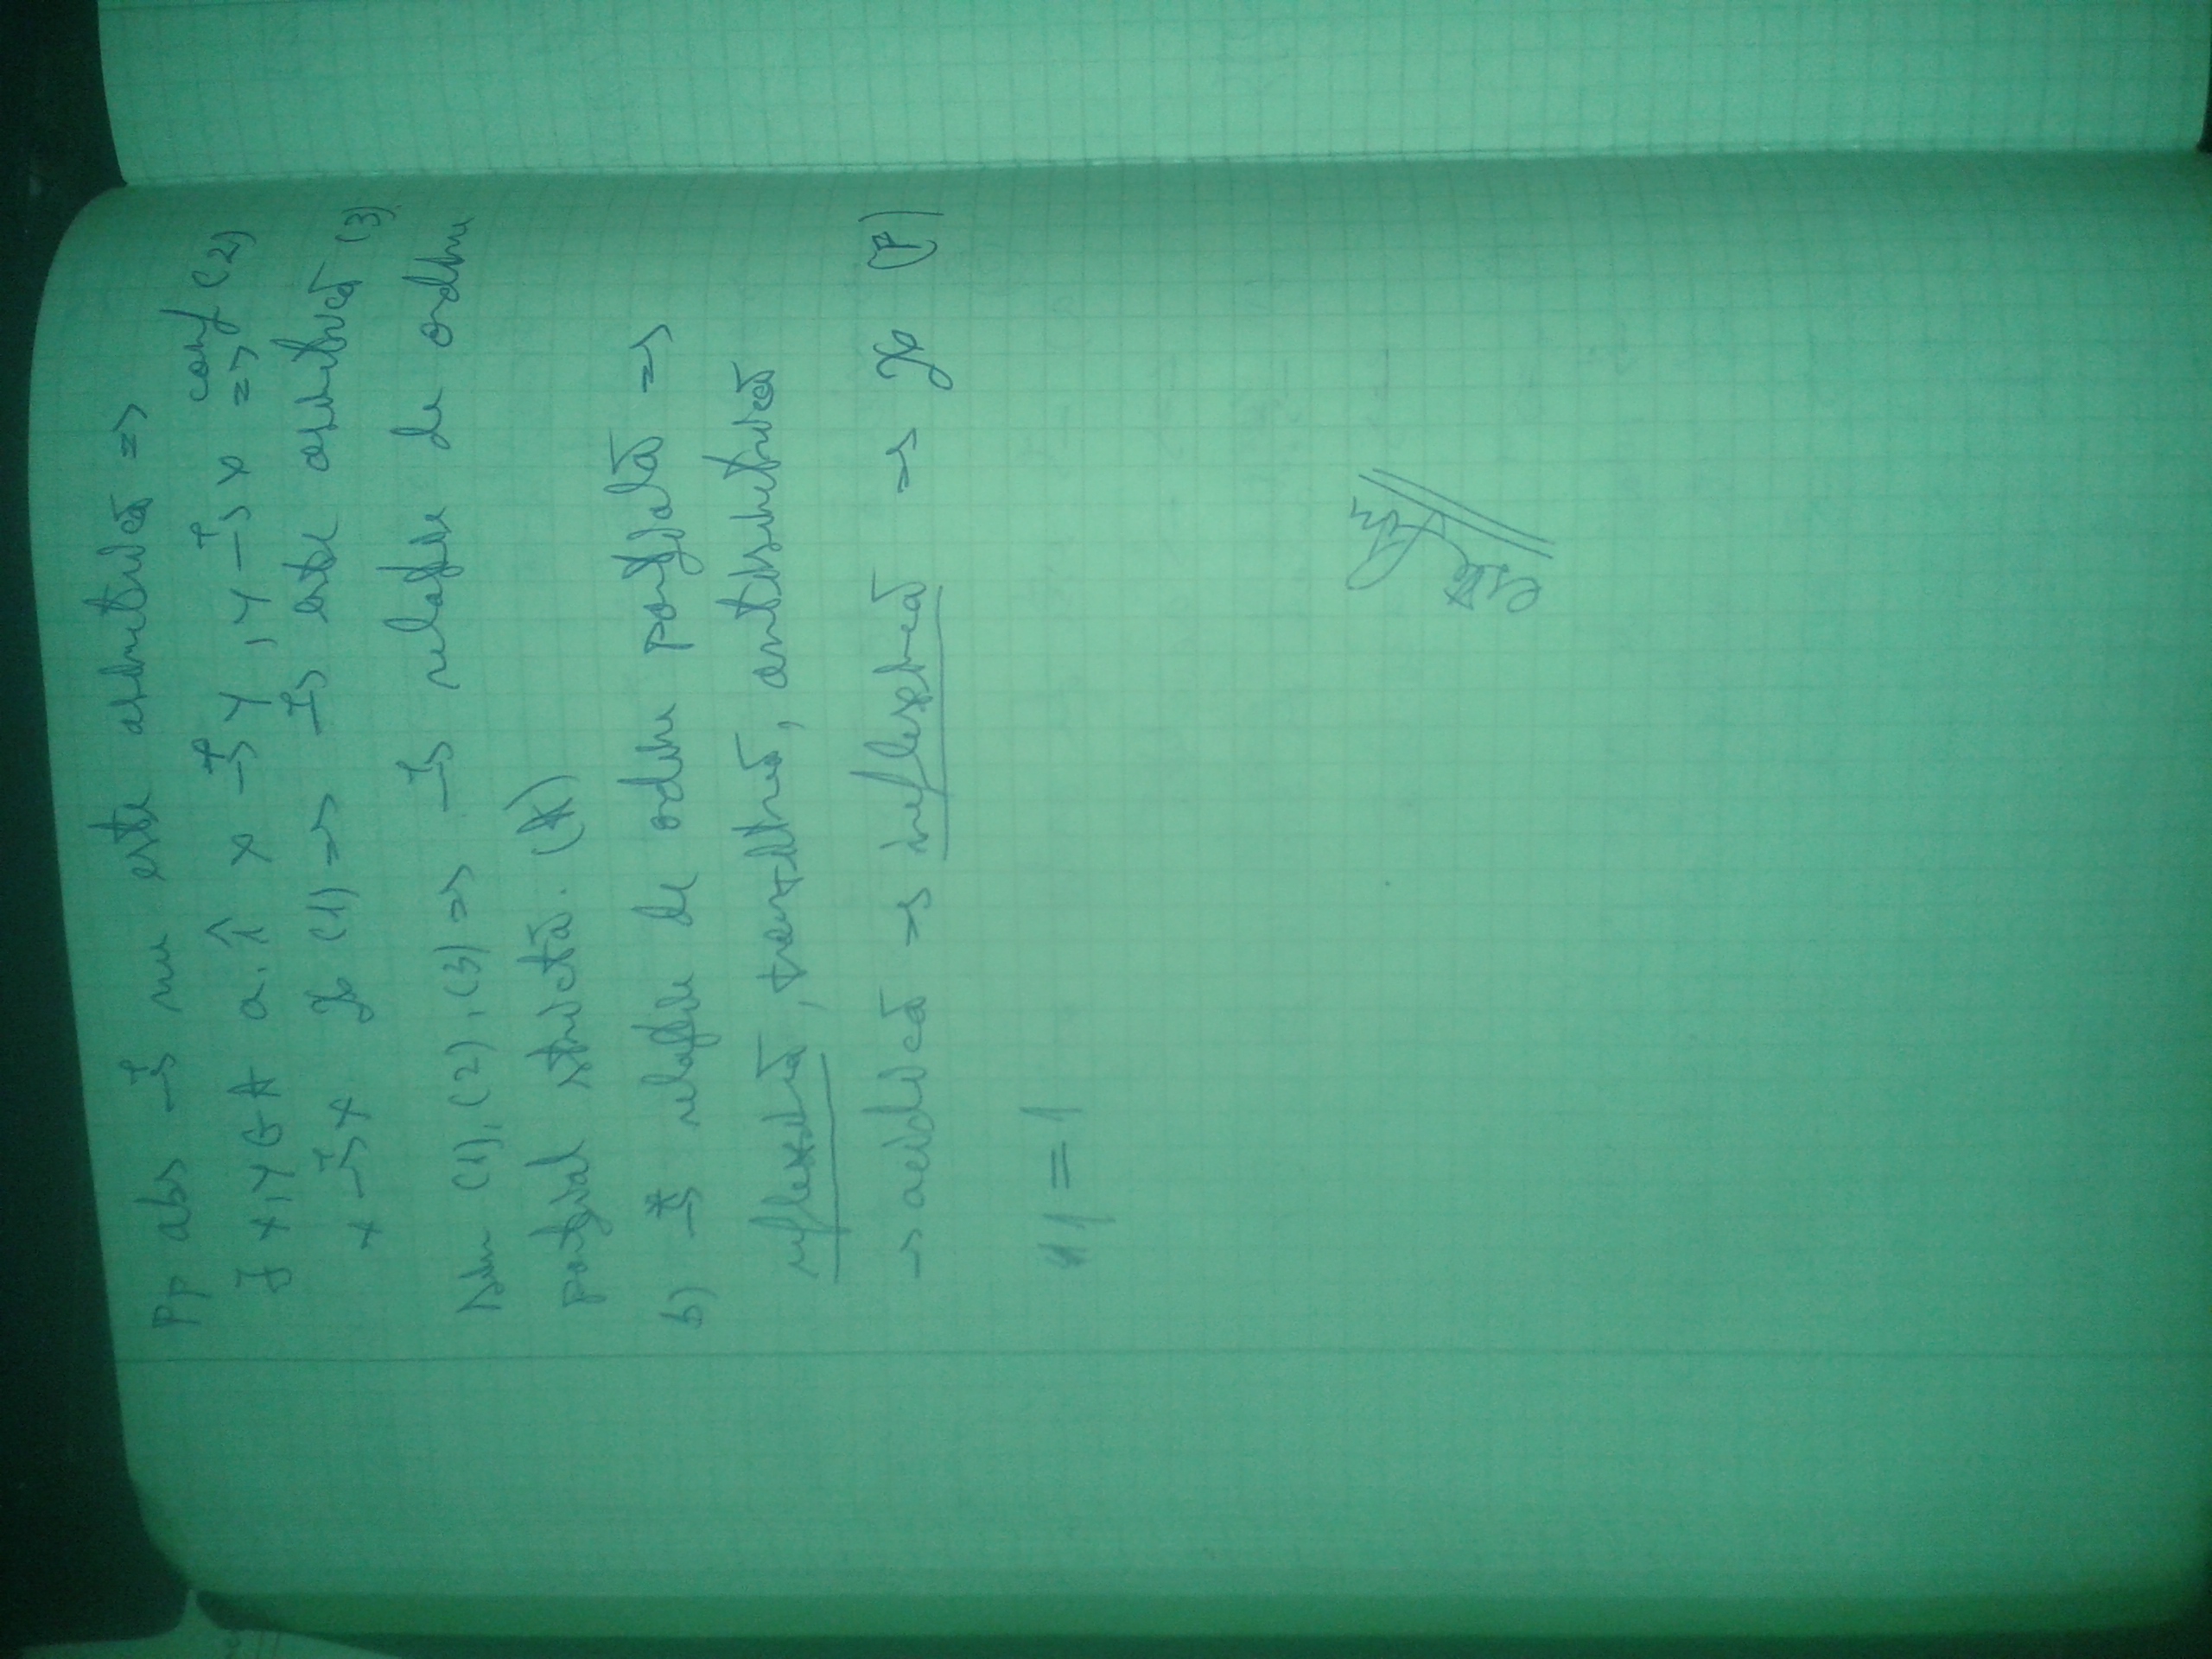 Pp abs →⁺ nu este asimetrică =>
∃ x,y ∈ A a.î x →⁺ y , y →⁺ x conf (2) =>
x →⁺ x ※ (1) => →⁺ este asimetrică (3)
Din (1), (2), (3) => →⁺ relație de ordine
parțial strictă. (A)
b) →* relație de ordine parțială =>
reflexivă, tranzitivă, antisimetrică
→ aciclică => ireflexivă => ※ (F)
11 = 1
este fin